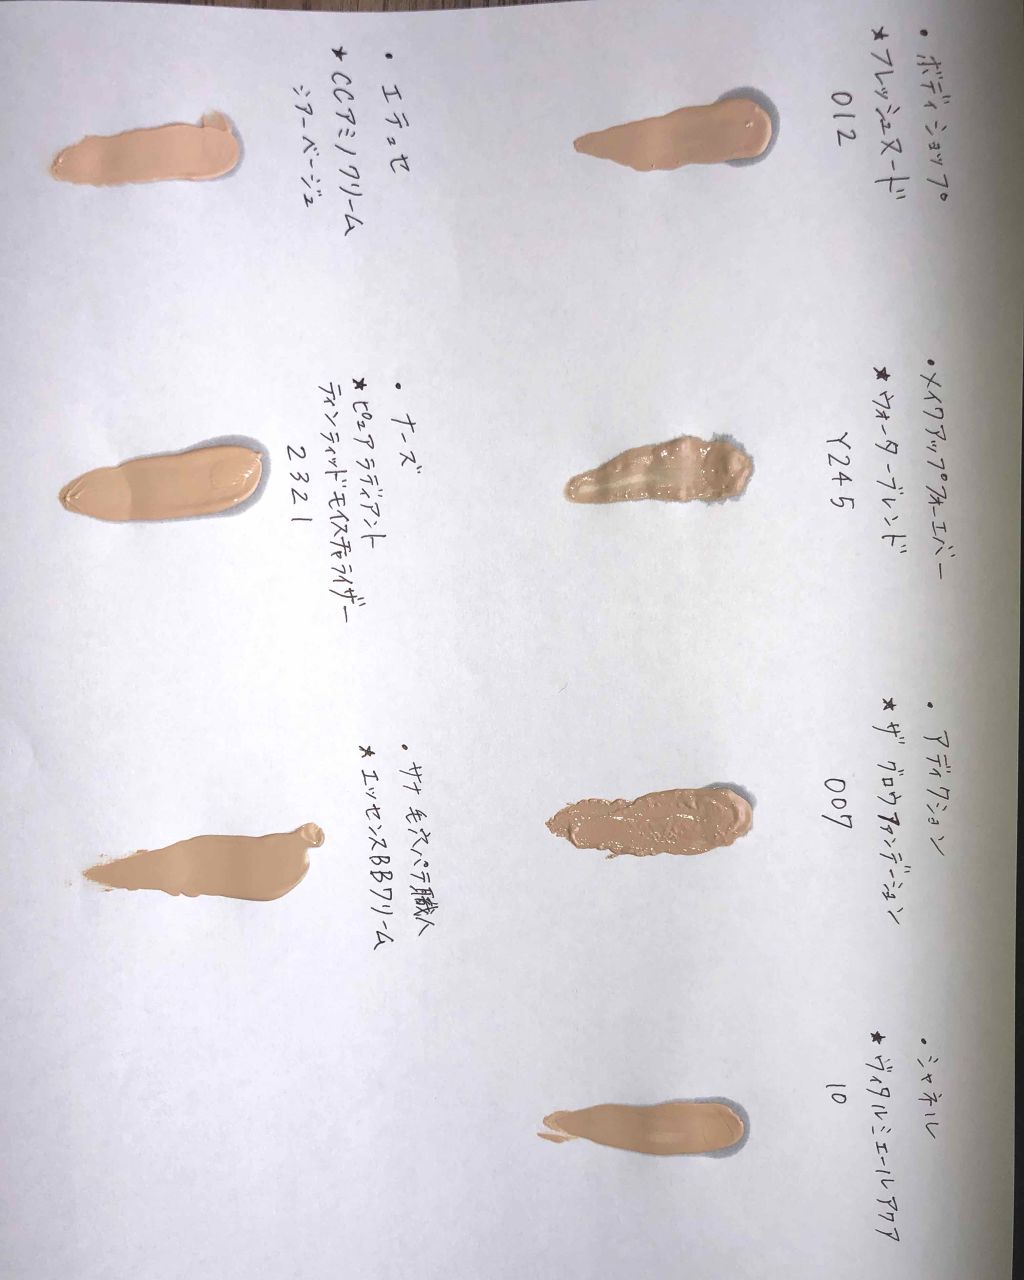 ・ボディショップ
★フレッシュヌード
012
・メイクアップフォーエバー
★ウォーターブレンド
Y245
・アディクション
★ザ グロウファンデーション
007
・シャネル
★ヴィタルミエールアクア
10
・エテュセ
★CCアミノクリーム
シアーベージュ
・ナーズ
★ピュアラディアント
ティンティッドモイスチャライザー
2321
・サナ毛穴パテ職人
★エッセンスBBクリーム